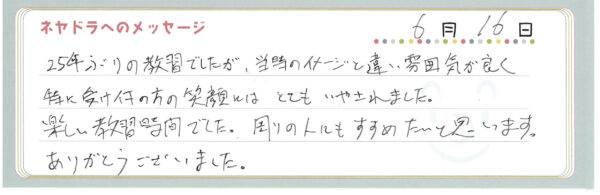 ネヤドラへのメッセージ
6月16日
25年ぶりの教習でしたが、当時のイメージと違い雰囲気が良く
特に受け付の方の笑顔にはとてもいやされました。
楽しい教習時間でした。周りの人にもすすめたいと思います。
ありがとうございました。